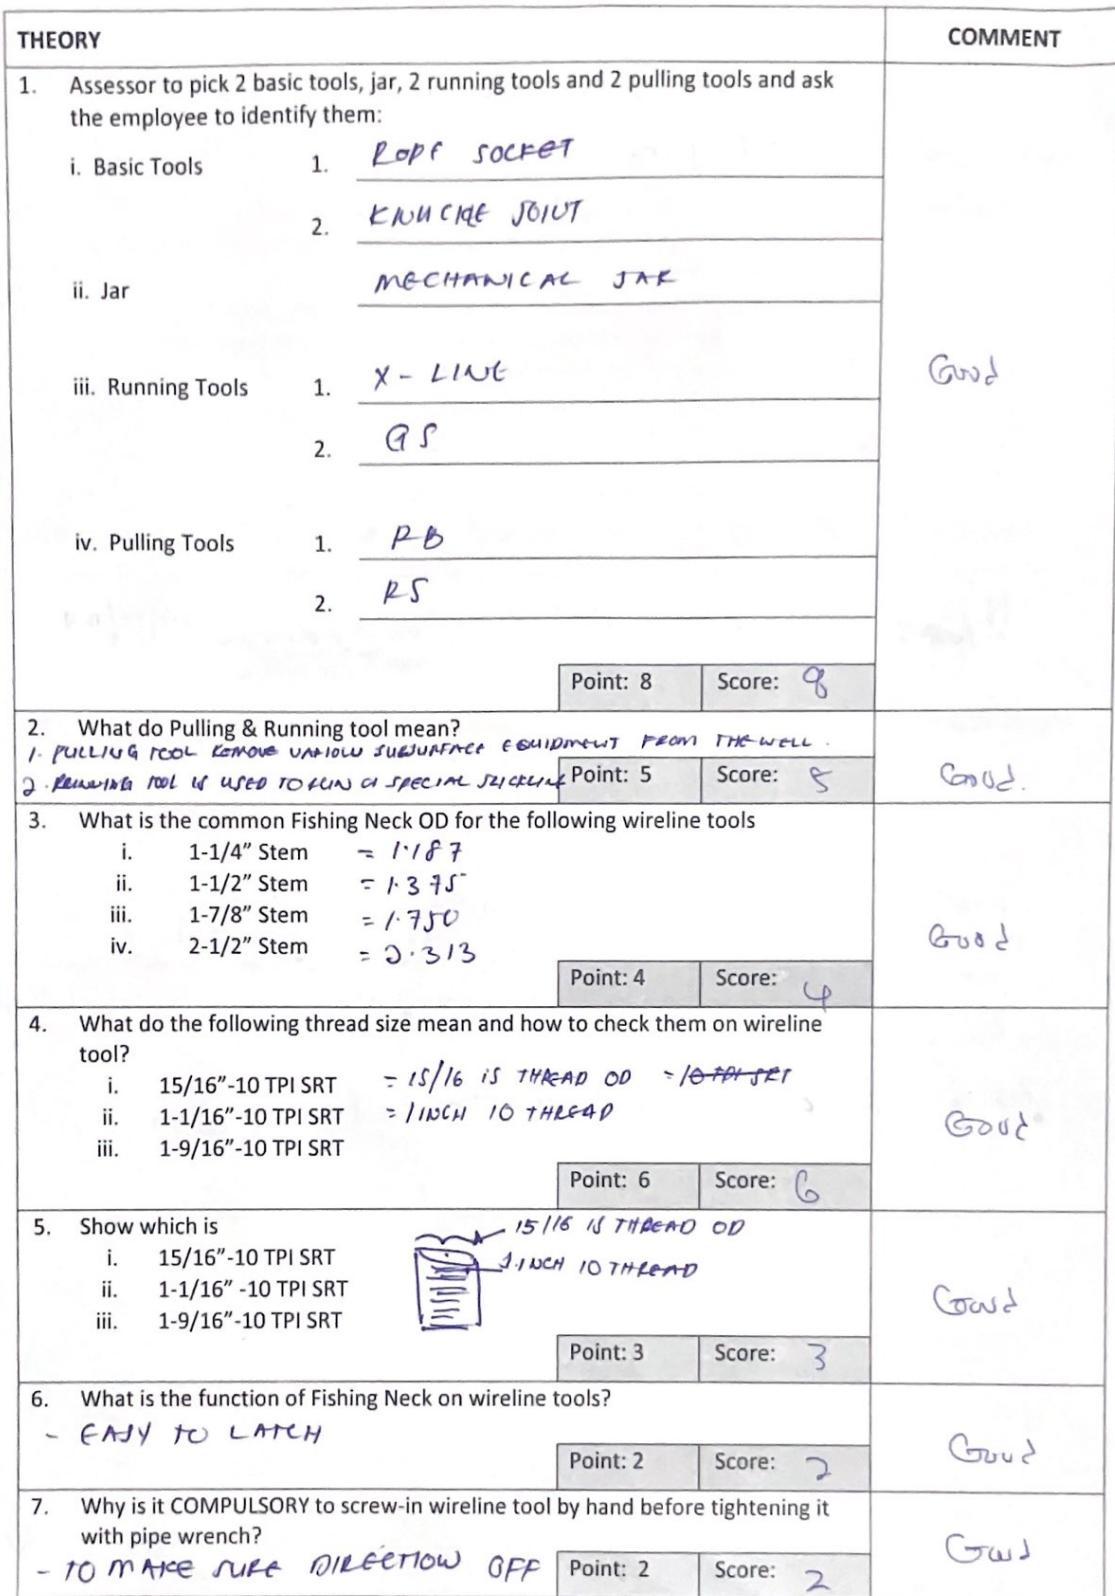 THEORY
COMMENT
1. Assessor to pick 2 basic tools, jar, 2 running tools and 2 pulling tools and ask
the employee to identify them:
i. Basic Tools 1. ROPE SOCKET
2. KNUCKLE JOINT
ii. Jar MECHANICAL JAR
iii. Running Tools 1. X - LINE
2. GS
iv. Pulling Tools 1. RB
2. RS
Good
Point: 8 Score: 8
2. What do Pulling & Running tool mean?
1. PULLING TOOL REMOVE VARIOUS SUBSURFACE EQUIPMENT FROM THE WELL.
2. RUNNING TOOL IS USED TO RUN A SPECIAL SLICKLINE
Point: 5 Score: 5
Good.
3. What is the common Fishing Neck OD for the following wireline tools
i. 1-1/4" Stem = 1.187
ii. 1-1/2" Stem = 1.375
iii. 1-7/8" Stem = 1.750
iv. 2-1/2" Stem = 2.313
Good
Point: 4 Score: 4
4. What do the following thread size mean and how to check them on wireline
tool?
i. 15/16"-10 TPI SRT = 15/16 IS THREAD OD = 10 TPI SRT
ii. 1-1/16"-10 TPI SRT = 1 INCH 10 THREAD
iii. 1-9/16"-10 TPI SRT
Good
Point: 6 Score: 6
5. Show which is
15/16 IS THREAD OD
i. 15/16"-10 TPI SRT
1 INCH 10 THREAD
ii. 1-1/16" -10 TPI SRT
iii. 1-9/16"-10 TPI SRT
Good
Point: 3 Score: 3
6. What is the function of Fishing Neck on wireline tools?
- EASY TO LATCH
Good
Point: 2 Score: 2
7. Why is it COMPULSORY to screw-in wireline tool by hand before tightening it
with pipe wrench?
- TO MAKE SURE DIRECTION OFF
Good
Point: 2 Score: 2